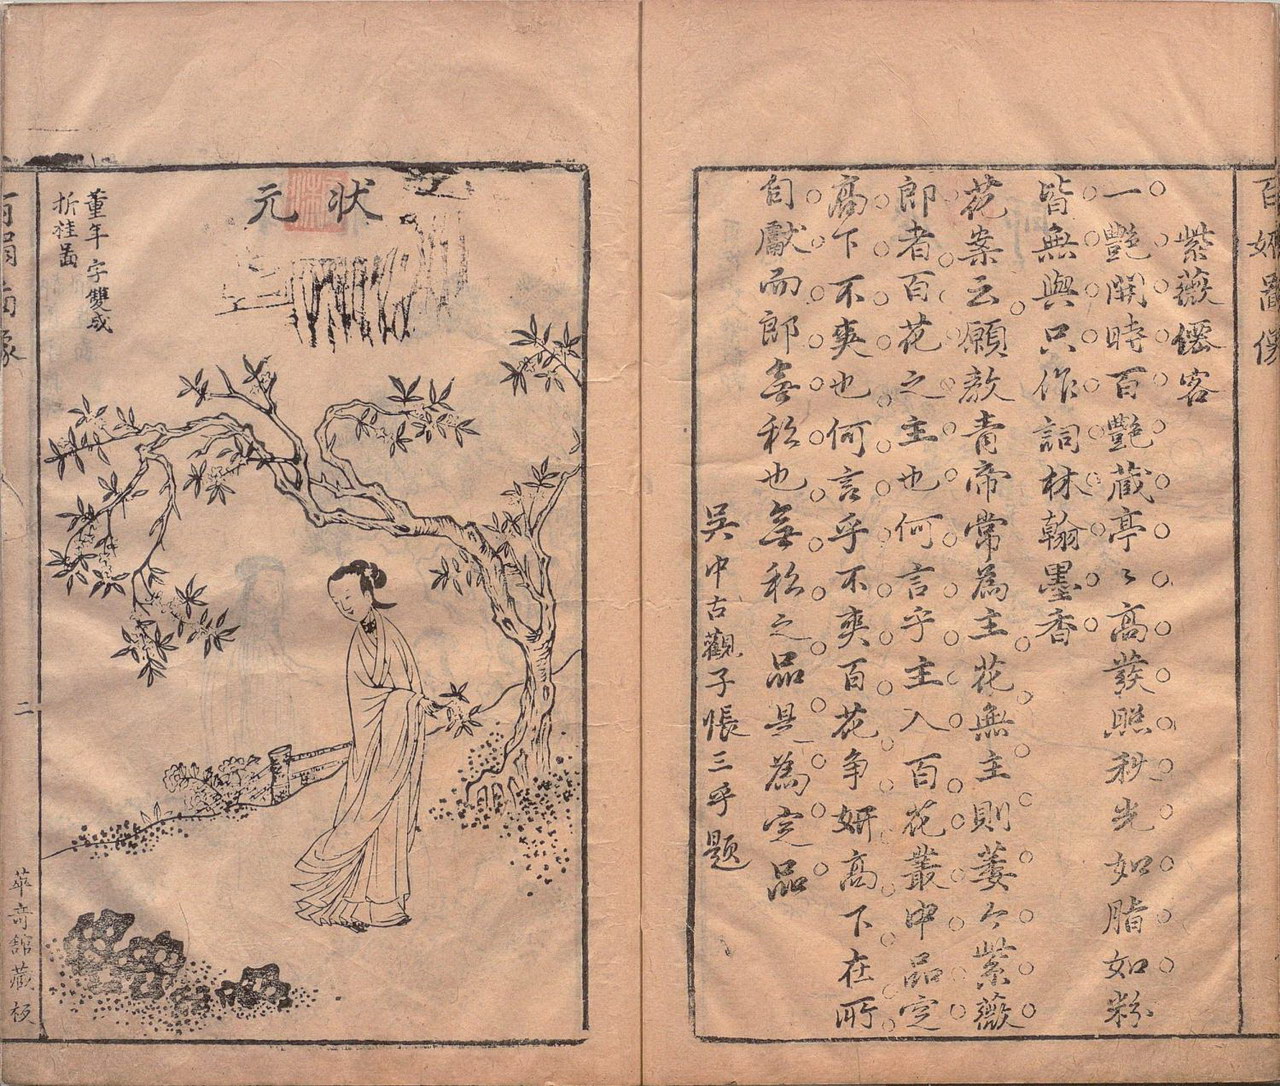 百妍啚像
紫薇僊客
一艷開時百艷蔵亭〻高發照秋光如脂如粉
皆無與只作詞林翰墨香
花案云願教青帝常為主花無主則萎今紫薇
郎者百花之主也何言乎主入百花叢中品定
高下不爽也何言乎不爽百花争妍高下在所
自獻而郎無私也無私之品是為定品
吳中古觀子悵三乎題
狀元
董年 字雙成
折桂啚
二
萃奇舘藏板